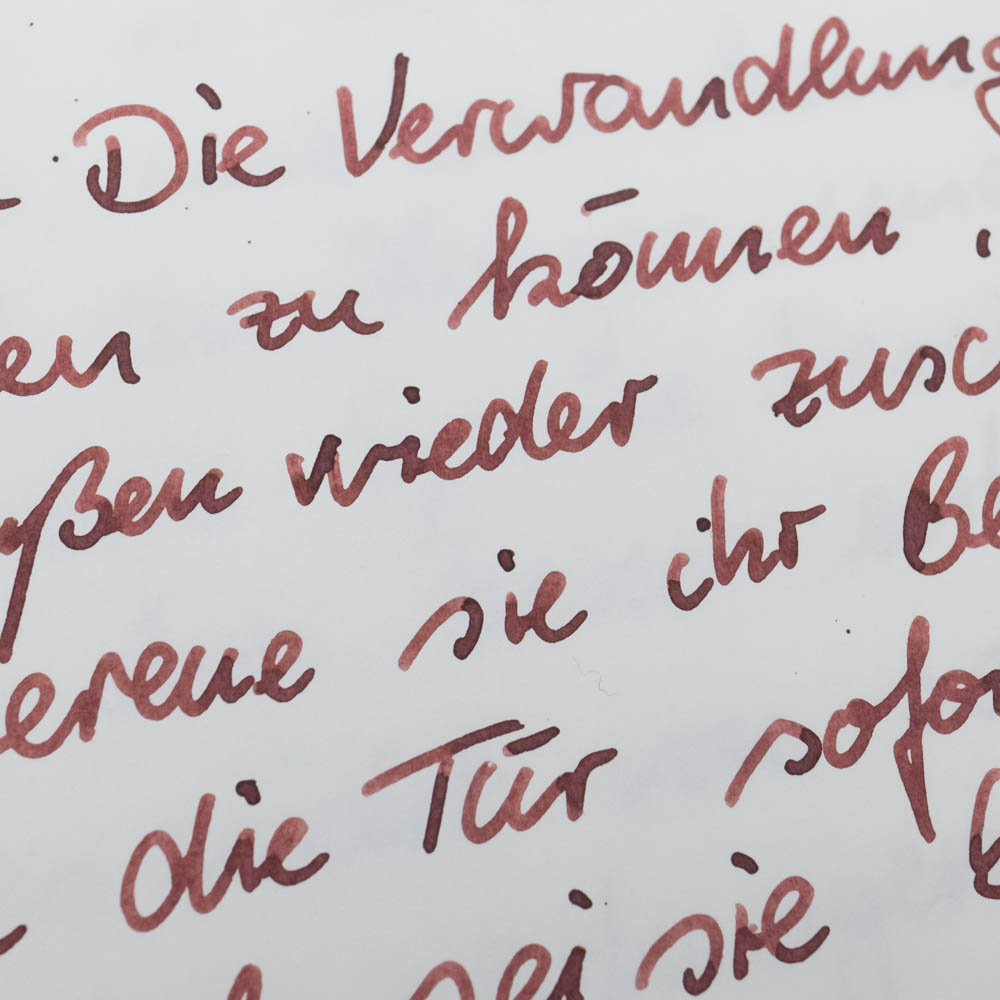 Die Verwandlung
en zu können.
ßen wieder zusc
ereue sie ihr Be
die Tür sofor
sie